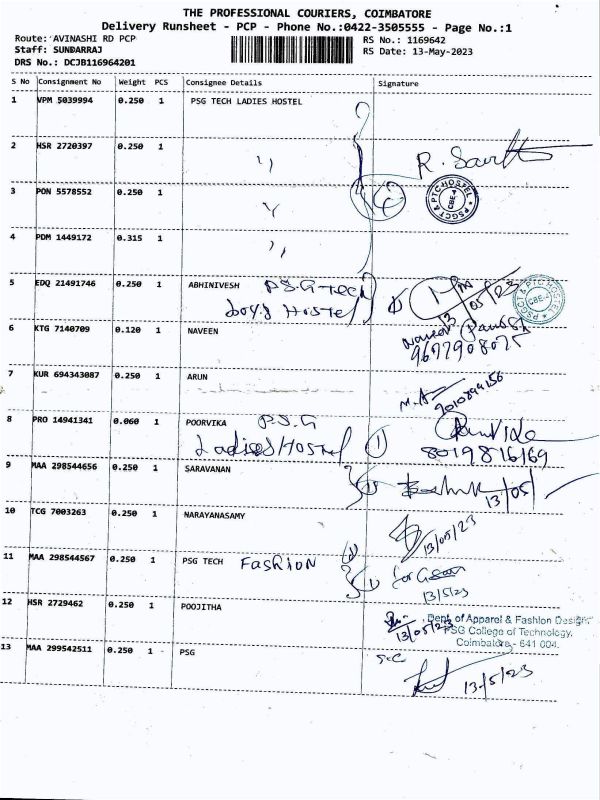 THE PROFESSIONAL COURIERS, COIMBATORE
Delivery Runsheet - PCP - Phone No.:0422-3505555 - Page No.:1
Route: AVINASHI RD PCP RS No.: 1169642
Staff: SUNDARRAJ RS Date: 13-May-2023
DRS No.: DCJB116964201
S No Consignment No Weight PCS Consignee Details Signature
1 VPM 5039994 0.250 1 PSG TECH LADIES HOSTEL
2 HSR 2720397 0.250 1 ,,
3 PON 5578552 0.250 1 ,,
4 PDM 1449172 0.315 1 ,,
PSGCT & PTC HOSTEL
CBE-4
5 EDQ 21491746 0.250 1 ABHINIVESH P.S.G-Tech
Boys Hostel
13/05/23
PSGCT & PTC HOSTEL
CBE-4
6 KTG 7140709 0.120 1 NAVEEN
9677908075
7 KUR 694343087 0.250 1 ARUN
8 PRO 14941341 0.060 1 POORVIKA P.S.G
Ladies Hostel 1
8019816169
9 MAA 298544656 0.250 1 SARAVANAN
13/05/
10 TCG 7003263 0.250 1 NARAYANASAMY
13/05/23
11 MAA 298544567 0.250 1 PSG TECH FASHION
13/5/23
12 HSR 2729462 0.250 1 POOJITHA
13/05/23
Dept. of Apparel & Fashion Design,
PSG College of Technology,
Coimbatore - 641 004.
13 MAA 299542511 0.250 1 PSG
13/5/23